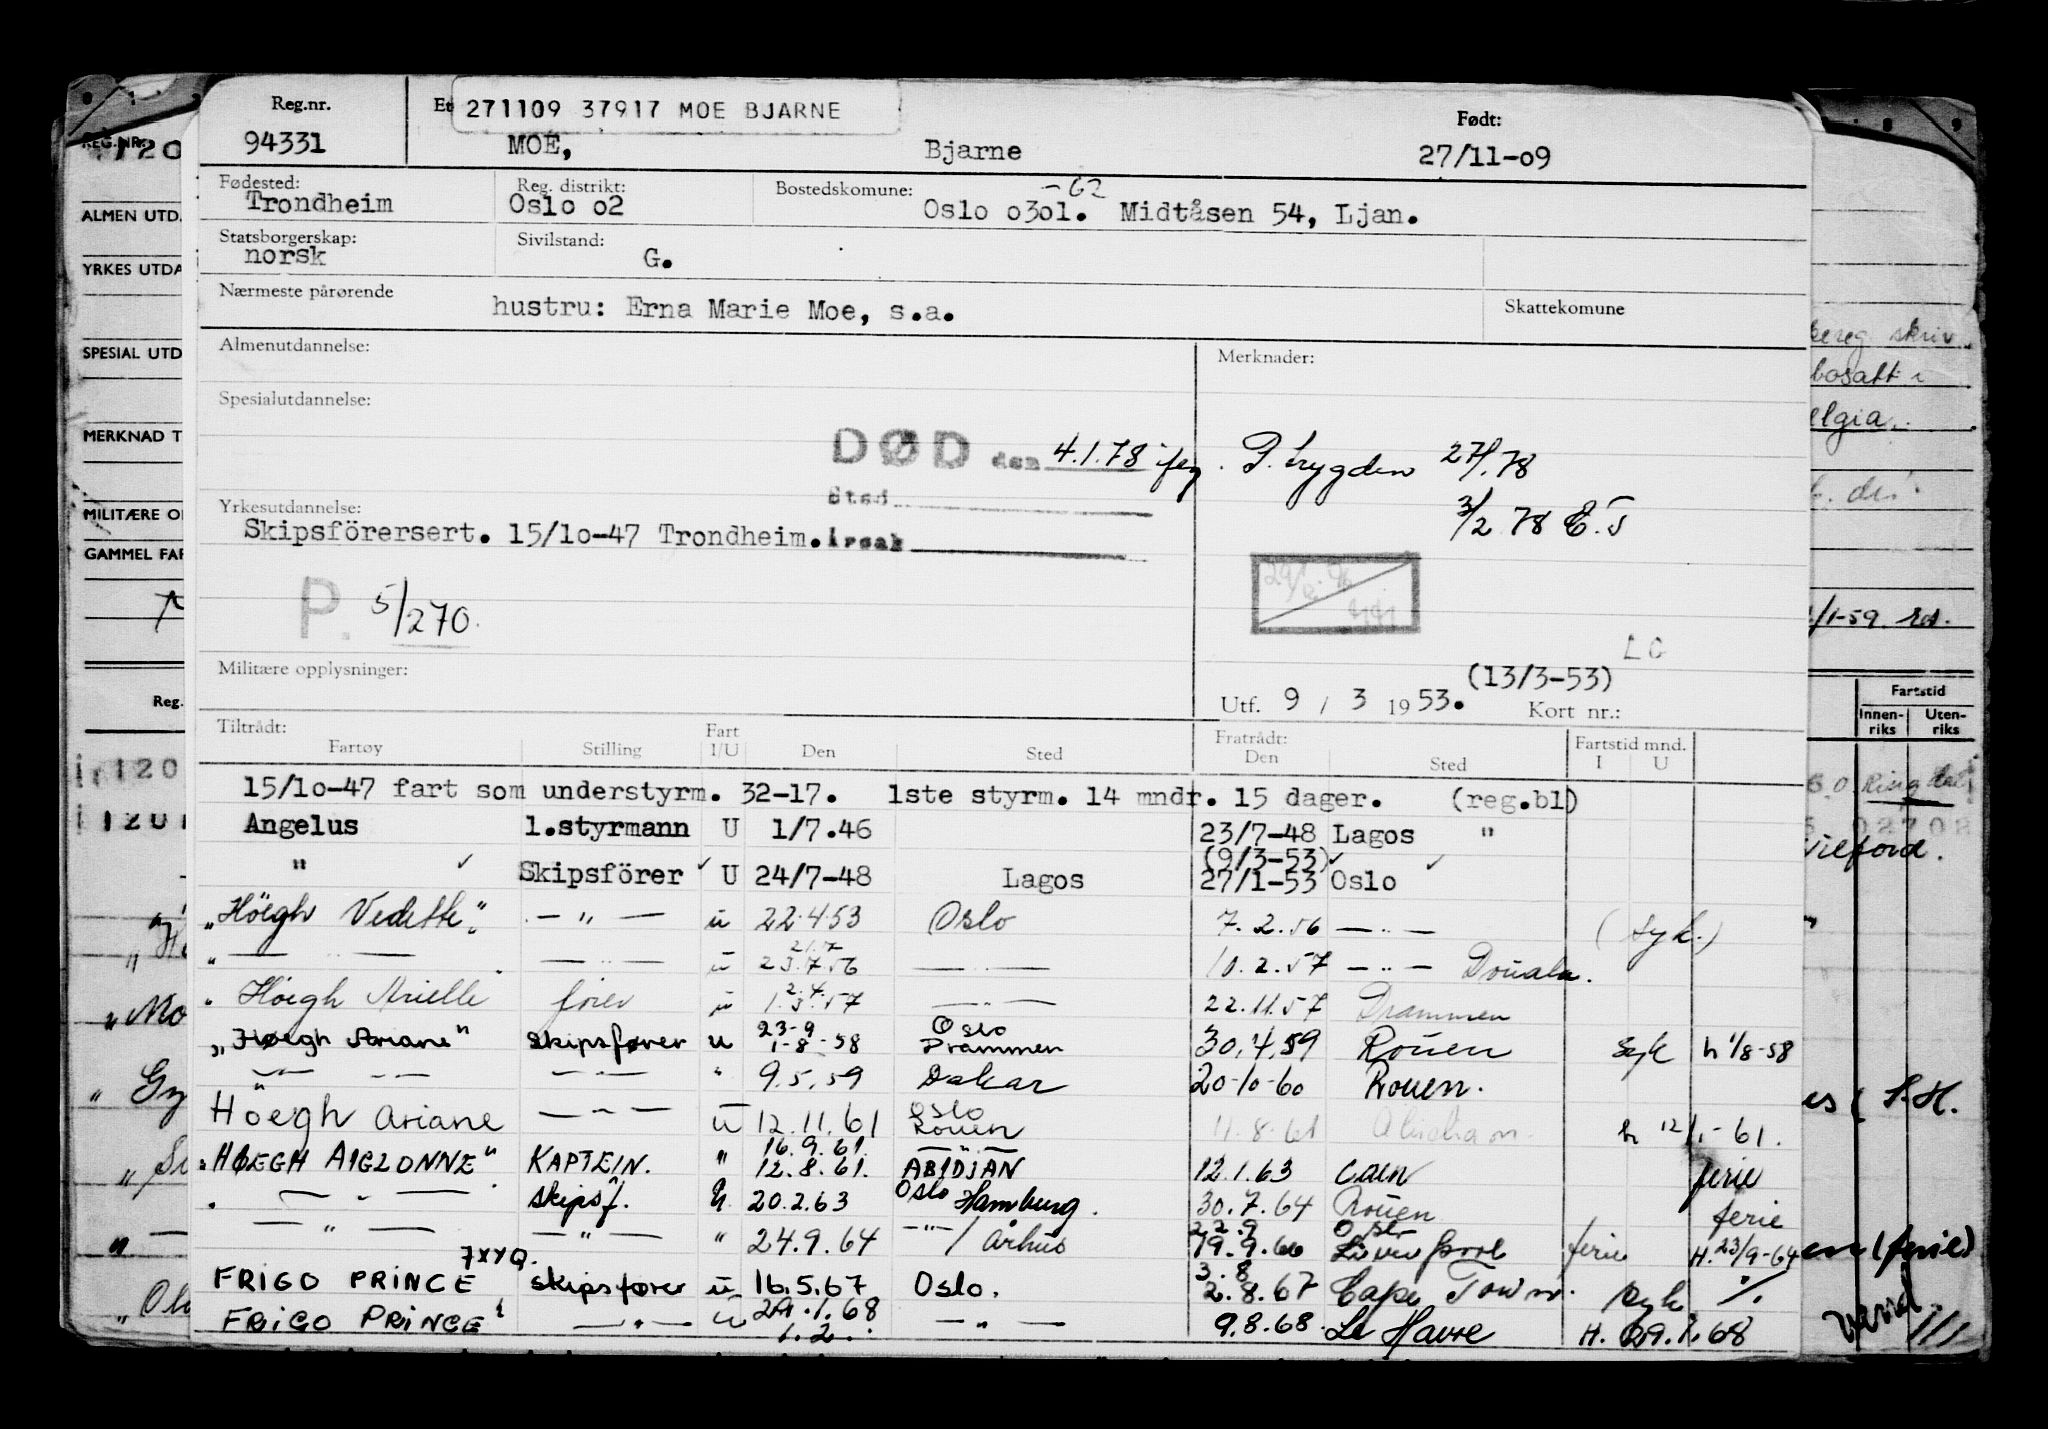 Reg.nr.
271109 37917 MOE BJARNE
Født:
94331 MOE, Bjarne 27/11-09
Fødested: Reg. distrikt: Bostedskomune: -62
Trondheim Oslo o2 Oslo o3o1. Midtåsen 54, Ljan.
Statsborgerskap: Sivilstand:
norsk G.
Nærmeste pårørende hustru: Erna Marie Moe, s.a. Skattekomune
Almenutdannelse: Merknader:
Spesialutdannelse:
DØD den 4.1.78 iføg. P. trygden 27/1.78
Sted
3/2 78
Yrkesutdannelse:
Skipsförersert. 15/1o-47 Trondheim. Årsak
P. 5/270.
LG
Militære opplysninger: (13/3-53)
Utf. 9 / 3 1953. Kort nr.:
Tiltrådt: Fratrådt:
Fartøy Stilling Fart I/U Den Sted Den Sted Fartstid mnd. I U
15/1o-47 fart som understyrm. 32-17. 1ste styrm. 14 mndr. 15 dager. (reg.bl)
Angelus 1.styrmann U 1/7.46 23/7-48 Lagos "
(9/3-53)
" Skipsförer U 24/7-48 Lagos 27/1-53 Oslo
"Höegh Vedette" — " — u 22.4.53 Oslo 7.2.56 — " — (syk.)
21.7
" — — — " — u 23.7.56 — " — 10.2.57 — " — Douala.
2.4.
" Höegh Arielle" förer u 1.3.57 — " — 22.11.57 Drammen
23-9 Oslo
"Høegh Ariane" skipsfører u 1-8-58 Drammen 30.4.59 Rouen syk h 1/8-58
— " — — " — " 9.5.59 Dakar 20-10-60 Rouen.
Oslo
Höegh Ariane — " — u 12.11.61 Rouen 11.8.61 h 12/1-61.
16.9.61. — " —
"HØEGH AIGLONNE" KAPTEIN. " 12.8.61. ABIDJAN 12.1.63 Caen ferie
" — " — skipsf. u. 20.2.63 Oslo Hamburg. 30.7.64 Rouen ferie
22.9 Oslo
— " — — " — " 24.9.64 — " — / Århus 19.9.66 Liverpool ferie H. 23/9-64
7XYQ. 3.8
FRIGO PRINCE skipsfører u 16.5.67 Oslo. 2.8.67 Cape Town. syk
FRIGO PRINCE — " — u 29.1.68 — " — 9.8.68 Le Havre H. 29.1.68
1.2.
REG.NR.
120
ALMEN UTD.
YRKES UTDA
SPESIAL UTD
MERKNAD T
MILITÆRE O
GAMMEL FAR
Reg.
120
bosatt i
1/1-59
Fartstid
Innen-riks Uten-riks
Vilford.
(ferie)